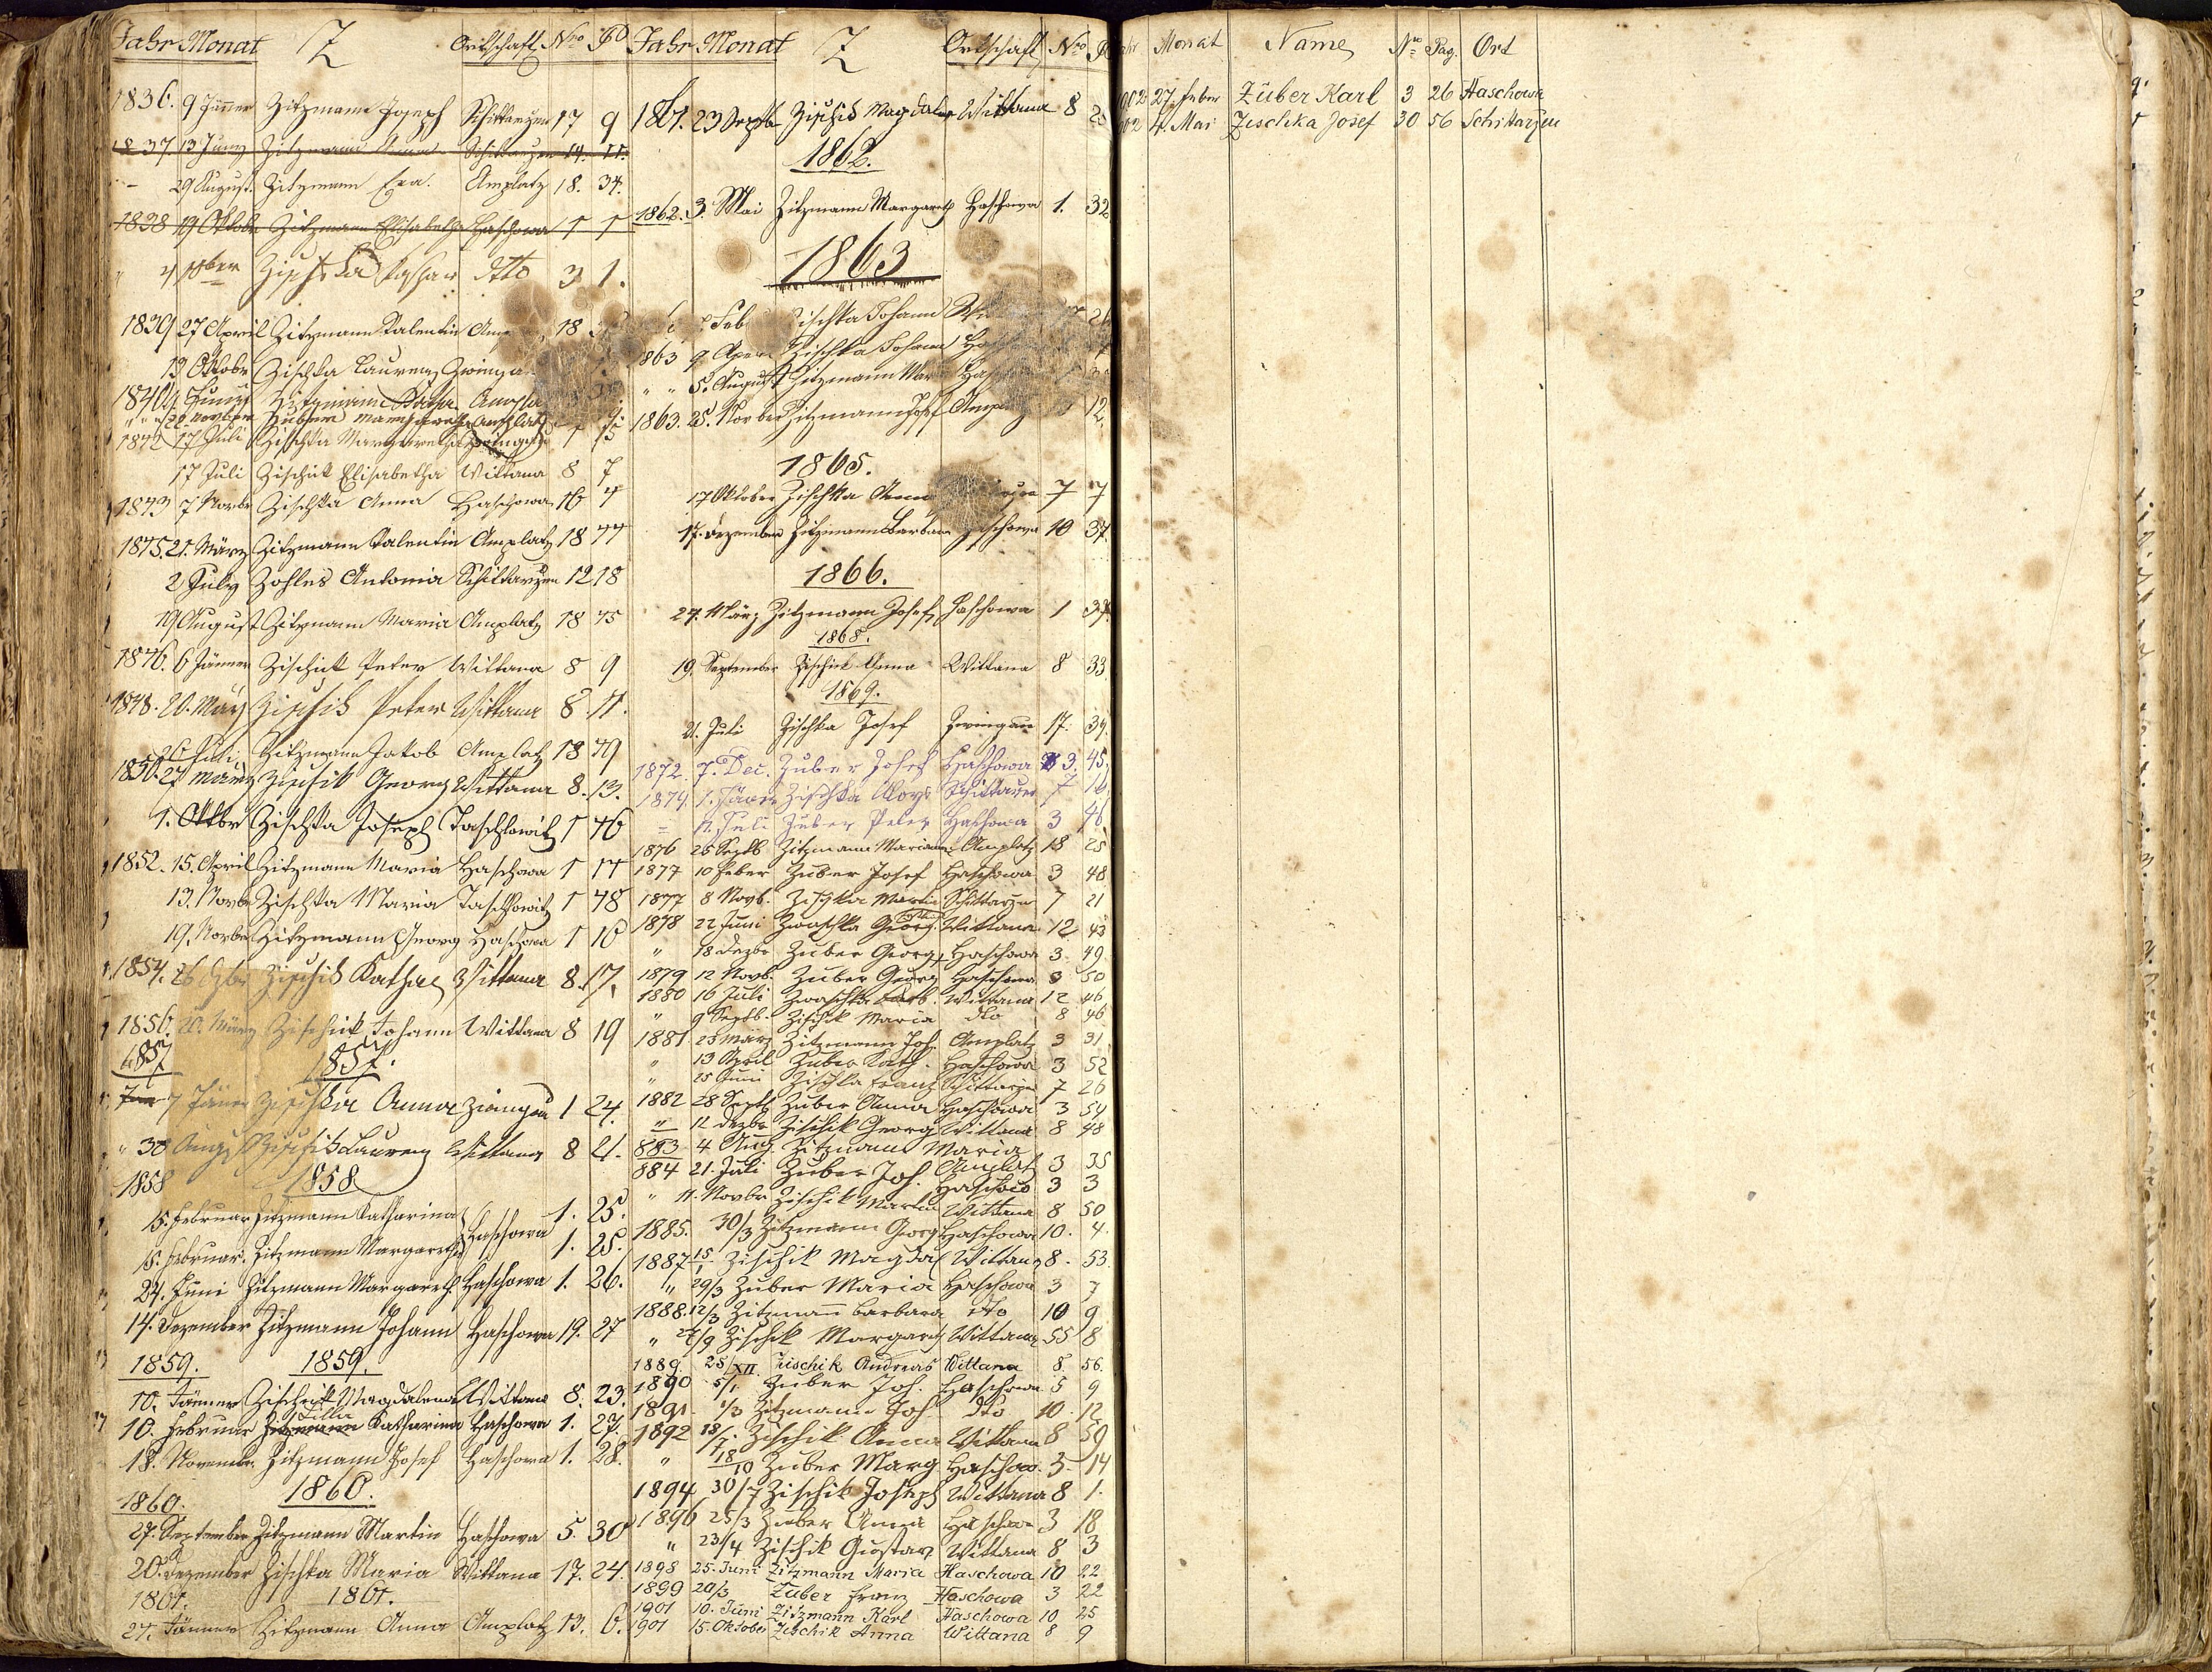 Jahr Monat Z Ortschaft Nro
1836. 9 Jänner Zitzmann Joseph Schittarzen 17 9
1837 13 Juny Zitzmann Anna Schittarzen 14. 11.
- 29 August. Zitzmann Eva. Amplatz 18. 34.
1838 19 Oktober Zitzmann Elisabetha Haschowa 1 1
" 4 Zischka dtto 3 1.
1839 27 April Zitzmann Valentin 18
19 Oktobr Zischka Laurenz
1840
22 November
1842 17 Juli Zischka Margaretha
17 Juli Zischik Elisabetha Wittana 8 7
1843 7 Novbr Zischka Anna Haschowa 16 4
1845. 21. März Zitzmann Valentin Amplatz 18 44
2 July Antonia Schittarzen 12 18
19 August Zitzmann Maria Amplatz 18 45
1846. 6 Jänner Zischik Peter Wittana 8 9
1848. 20. May Zischik Peter Wittana 8. 11.
26 Juli Zitzmann Jakob Amplatz 18 49
1850. 27 März Zischik Georg Wittana 8. 13.
1. Oktbr Zischka Joseph Taschlowitz 1 46
1852. 15. April Zitzmann Maria Haschowa 1 14
13. Novbr Zischka Maria Taschlowitz 1 48
19. Novbr Zitzmann Georg Haschowa 1 16
1854. Zischik Wittana 8. 17.
1856. 20. März Zischik Johann Wittana 8 19
1857 1857.
7 Jäner Zischka Anna 1 24.
" 30 Zischik Laurenz Wittana 8 21.
1858 1858
15. Februar Zitzmann Katharina Haschowa 1. 25.
15. Februar. Zitzmann Margaretha 1. 25.
24. Juni Zitzmann Margareth. Haschowa 1. 26.
14. Dezember Zitzmann Johann Haschowa 19. 27
1859. 1859.
10. Jänner Zischik Magdalena Wittana 8. 23.
10. Februar Zitzmann Katharina Haschowa 1. 27.
18. November Zitzmann Josef Haschowa 1. 28.
1860. 1860.
27. September Zitzmann Martin Haschowa 5. 30
20. Dezember Zischka Maria Wittana 17. 24.
1861. 1861.
27. Jänner Zitzmann Anna Amplatz 13. 6.
Jahr Monat Z Ortschaft Nro
1861. 23 Septbr Zischik Magdalena Wittana 8
1862.
1862. 3. Mai Zitzmann Margareth Haschowa 1. 32
1863
Zischka Johann
1863 9 Zischka Johann
" " 5. August Zitzmann
1863. 25. Novber Zitzmann Josef 12.
1865.
17 Oktober Zischka Anna 7 7
17. Dezember Zitzmann Barbara Haschowa 10 37.
1866.
24. März Zitzmann Josef Haschowa 1 37.
1868.
19. September Zischik Anna Wittana 8 33.
1869.
21. Juli Zischka Josef Zwingau 17. 34.
1872. 7. Dec. Zuber Josef Haschowa 3. 45.
1874. 1. Jäner Zischka Aloys Schittarzen 7 16
= 11. Juli Zuber Peter Haschowa 3 46
1876 26 Septb Zitzmann Mariana Amplatz 18 25
1877 10 Feber Zuber Josef Haschowa 3 48
1877 8 Novb. Zischka Martin Schittarzen 7 21
1878 22 Juni Zwaschka Georg Wittana 12 43
" 18 Dezbr Zuber Georg Haschowa 3. 49.
1879 12 Novb. Zuber Georg Haschowa 3 50
1880 16 Juli Zwaschka Barb. Wittana 12 46
" 9 Septb. Zischik Maria dto 8 46
1881 28 März Zitzmann Joh. Amplatz 3 31
" 13 April Zuber Kath. Haschowa 3 52
" 25 Juni Zischka Franz Schittarzen 7 26
1882 28 Septb Zuber Anna Haschowa 3 54
" 12 Dezbr Zischik Georg Wittana 8 48
883 4 Aug. Zitzmann Maria Amplatz 3 35
884 21. Juli Zuber Joh. Haschow 3 3
" 11. Novbr Zischik Martin Wittana 8 50
1885. 30/3 Zitzmann Georg Haschowa 10. 4.
1887 15/1 Zischik Magdal Wittana 8. 53.
" 29/3 Zuber Maria Haschowa 3 7
1888. 12/3 Zitzmann Barbara dto 10 9
" 27/9 Zischik Margareth Wittana 55 8
1889. 25/XII. Zischik Andreas Wittana 8. 56.
1890 5/1 Zuber Joh. Haschowa 5 9
1891. 1/3 Zitzmann Joh. dto 10. 12
1892 18/7. Zischik Anna Wittana 8 59
" 18/10 Zuber Marg Haschow. 3- 14
1894 30/7 Zischik Joseph Wittana 8 1.
1896 25/3 Zuber Anna Haschowa 3 18
" 23/4 Zischik Gustav Wittana 8 3
1898 25. Juni Zitzmann Maria Haschowa 10 22
1899 20/3 Zuber Franz Haschowa 3 22
1901 10. Juni Zitzmann Karl Haschowa 10 25
1901 15. Oktober Zischik Anna Wittana 8 9
Monat Name No Pag. Ort
902 27. Feber Zuber Karl 3 26 Haschowa
902 4. Mai Zischka Josef 30 56 Schittarzen